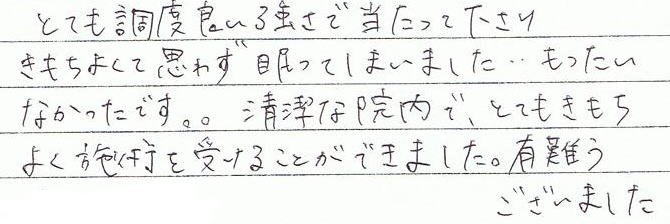 とても調度良い強さで当たって下さり
きもちよくて思わず眠ってしまいました‥もったい
なかったです。。清潔な院内で、とてもきもち
よく施術を受けることができました。有難う
ございました